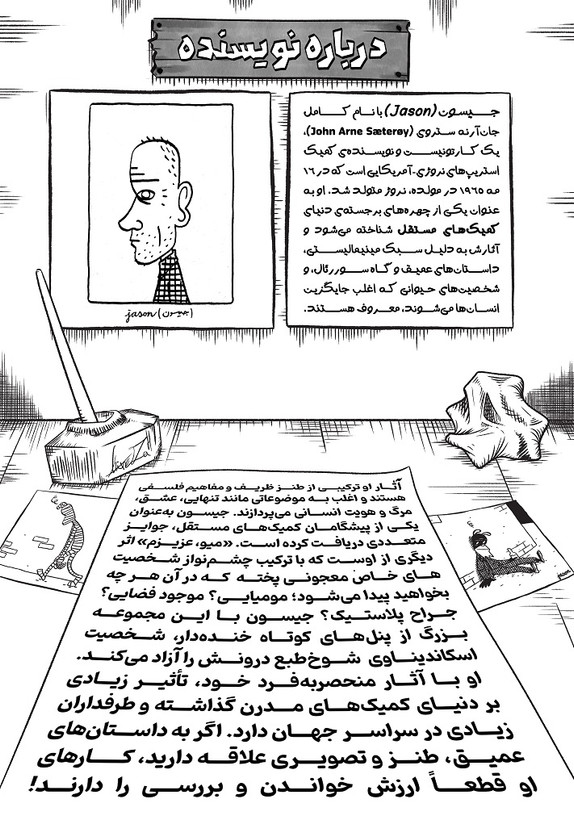 درباره نویسنده
جیسون (Jason) با نام کامل
جان آرنه ستروی (John Arne Sæterøy)،
یک کارتونیست و نویسنده‌ی کمیک
استریپ‌های نروژی-آمریکایی است که در ۱۶
مه ۱۹۶۵ در مولده، نروژ متولد شد. او به
عنوان یکی از چهره‌های برجسته‌ی دنیای
کمیک‌های مستقل شناخته می‌شود و
آثارش به دلیل سبک مینیمالیستی،
داستان‌های عمیق و گاه سوررئال، و
شخصیت‌های حیوانی که اغلب جایگزین
انسان‌ها می‌شوند، معروف هستند.
jason (جیسون)
آثار او ترکیبی از طنز ظریف و مفاهیم فلسفی
هستند و اغلب به موضوعاتی مانند تنهایی، عشق،
مرگ و هویت انسانی می‌پردازند. جیسون به‌عنوان
یکی از پیشگامان کمیک‌های مستقل، جوایز
متعددی دریافت کرده است. «میو، عزیزم» اثر
دیگری از اوست که با ترکیب چشم‌نواز شخصیت
های خاص معجونی پخته که در آن هر چه
بخواهید پیدا می‌شود؛ مومیایی؟ موجود فضایی؟
جراح پلاستیک؟ جیسون با این مجموعه
بزرگ از پنل‌های کوتاه خنده‌دار، شخصیت
اسکاندیناوی شوخ‌طبع درونش را آزاد می‌کند.
او با آثار منحصربه‌فرد خود، تأثیر زیادی
بر دنیای کمیک‌های مدرن گذاشته و طرفداران
زیادی در سراسر جهان دارد. اگر به داستان‌های
عمیق، طنز و تصویری علاقه دارید، کارهای
او قطعاً ارزش خواندن و بررسی را دارند!